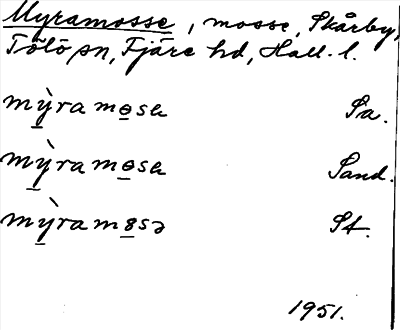 Myramosse, mosse, Skårby,
Tölö sn, Fjäre hd, Hall. l.
mỳ̲ra mɵ̲sa Sa.
mỳ̲ra mɵ̲sa Sand.
mỳ̲ra m8̲sə St.
1951.